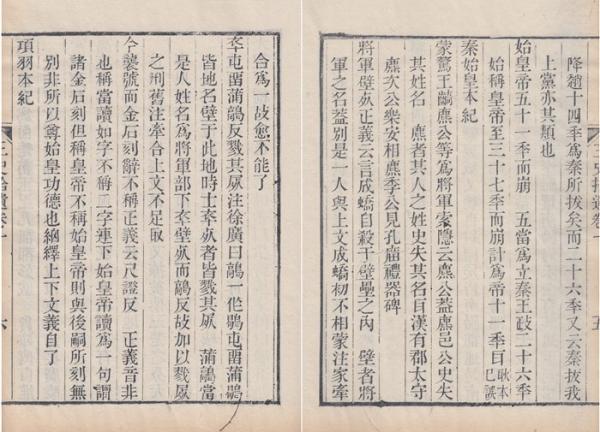 降趙十四秊爲秦所拔矣而二十六秊又云秦拔我
上黨亦其類也
始皇帝五十一秊而崩 五當爲立秦王政二十六秊
始稱皇帝至三十七秊而崩計爲帝十一秊耳耿本已誤
秦始皇本紀
蒙驁王齮麃公等爲將軍索隱云麃公蓋麃邑公史失
其姓名 麃者其人之姓史失其名耳漢有郡太守
麃次公樂安相麃季公見孔廟禮器碑
將軍壁死正義云言成蟜自殺于壁壘之內 壁者將
軍之名蓋別是一人與上文成蟜初不相蒙注家牽
五
合爲一故愈不能了
卒屯留蒲鶮反戮其屍注徐廣曰鶮一作鶮屯留蒲鶮
皆地名壁于此地時士卒死者皆戮其屍 蒲鶮當
是人姓名爲將軍部下卒壁死而鶮反故加以戮屍
之刑舊注牽合上文不足取
今襲號而金石刻辭不稱正義云尺證反 正義音非
也稱當讀如字不稱二字連下始皇帝讀爲一句謂
諸金石刻但稱皇帝不稱始皇帝則與後嗣所刻無
別非所以尊始皇功德也紬繹上下文義自了
項羽本紀
三史拾遺卷一
六